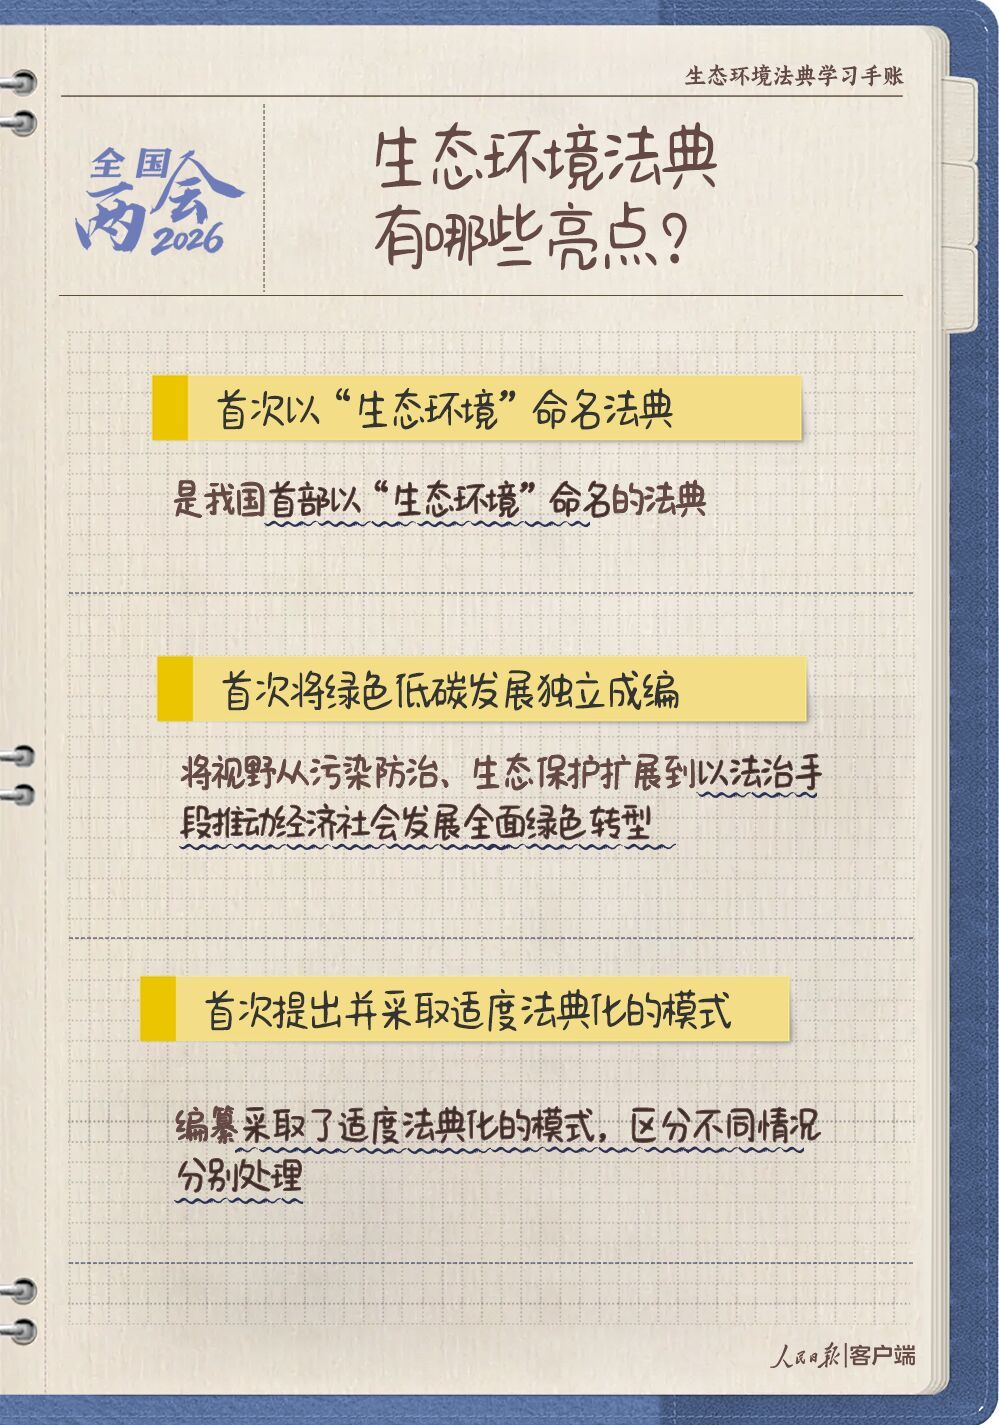 生态环境法典学习手账
全国
两会
2026
生态环境法典
有哪些亮点？
首次以“生态环境”命名法典
是我国首部以“生态环境”命名的法典
首次将绿色低碳发展独立成编
将视野从污染防治、生态保护扩展到以法治手
段推动经济社会发展全面绿色转型
首次提出并采取适度法典化的模式
编纂采取了适度法典化的模式，区分不同情况
分别处理
人民日报|客户端